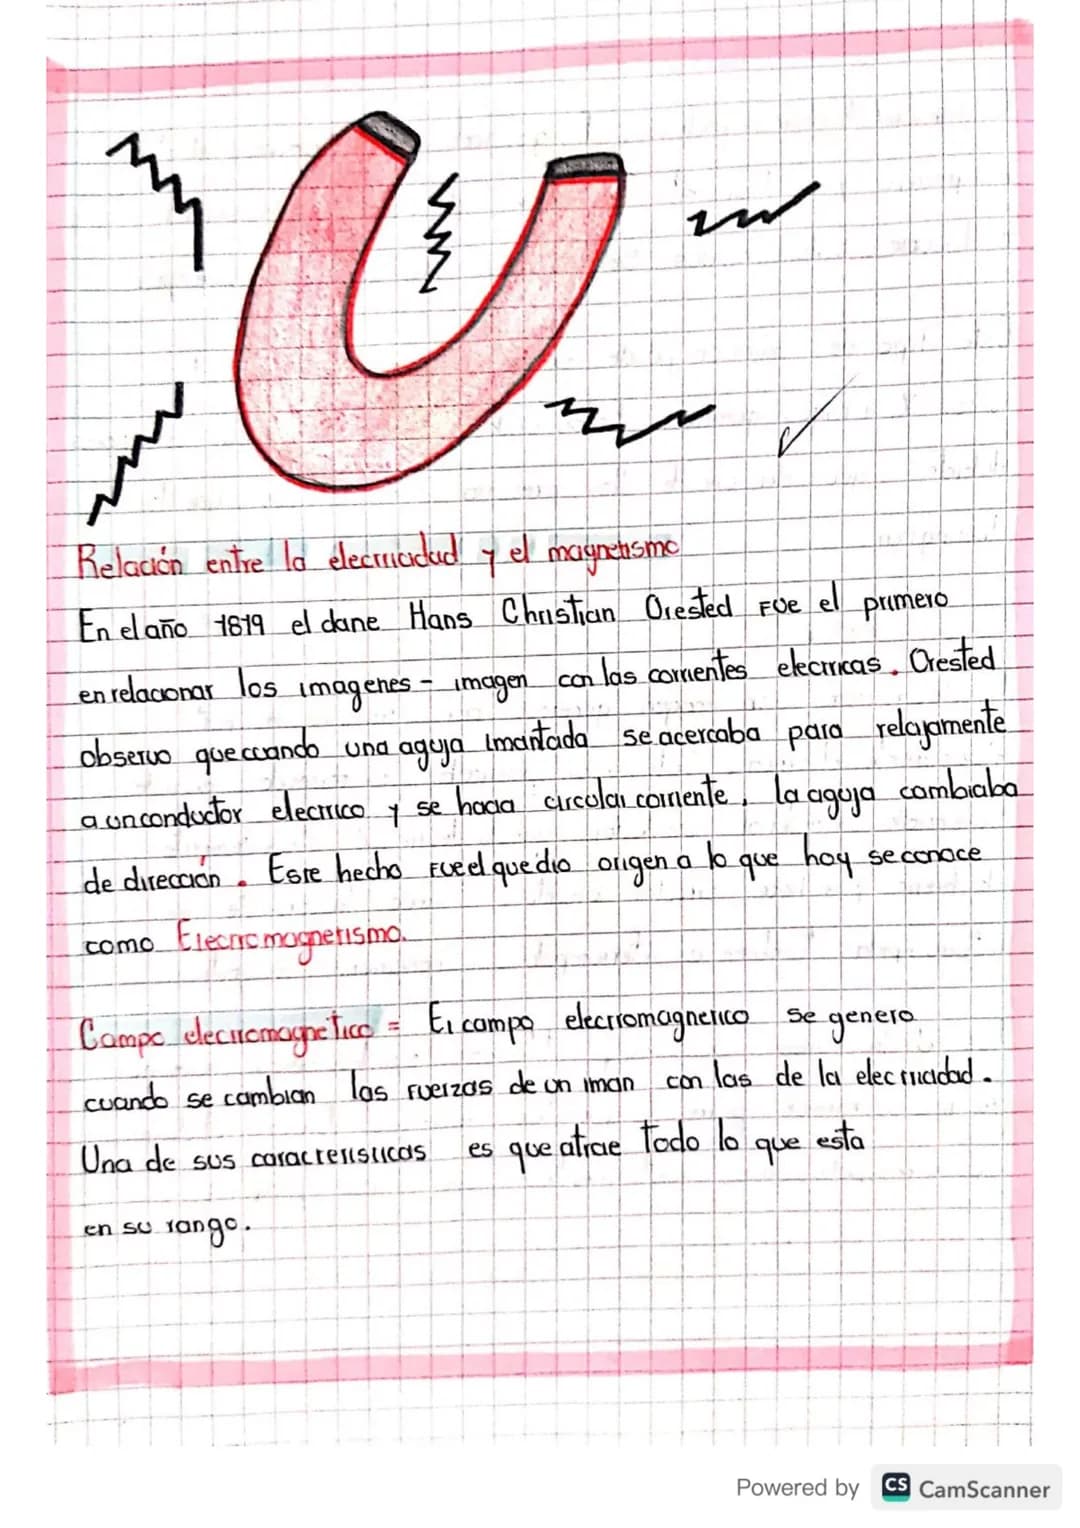 Relación entre la electricidad y el magnetismo
En el año 1819 el dane Hans Christian Orested Fue el primero
en relacionar los imagenes - imagen con las corrientes electricas. Orested
observo que cuando una aguja imantada se acercaba para relajamente
a un conductor electrico y se hacia circolar corriente, la aguja cambiaba
de dirección. Este hecho Fue el que dio origen a lo que hoy se conoce
como Electromagnetismo.
Campo electromagnetico = El campo electromagnetico se genero
cuando se cambian las fuerzas de un iman con las de la electricidad.
Una de sus caracteristicas es que atrae todo lo que esta
en su rango.
Powered by CS CamScanner